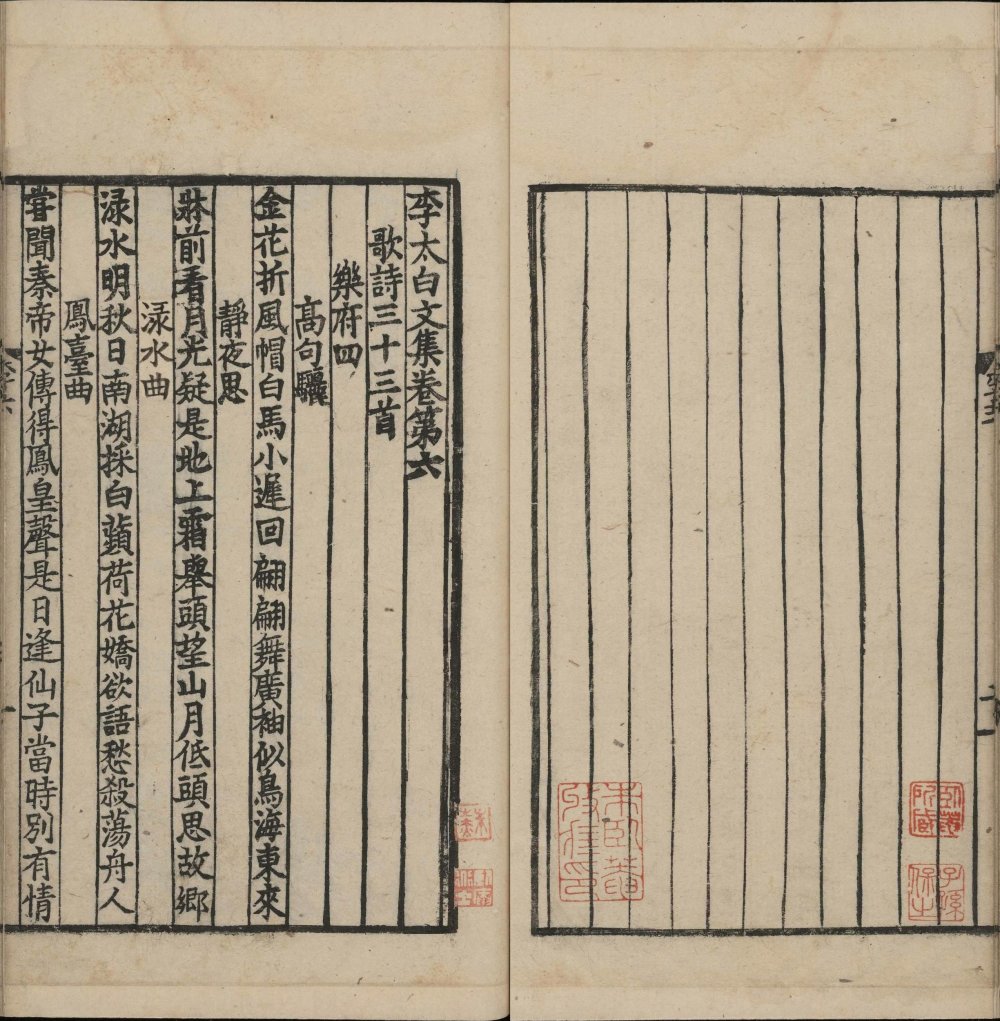 李太白文集卷第六
歌詩三十三首
樂府四
高句驪
金花折風帽白馬小遲回翩翩舞廣袖似鳥海東來
靜夜思
牀前看月光疑是地上霜舉頭望山月低頭思故鄉
淥水曲
淥水明秋日南湖採白蘋荷花嬌欲語愁殺蕩舟人
鳳臺曲
嘗聞秦帝女傳得鳳皇聲是日逢仙子當時別有情
子孫
朱臥菴